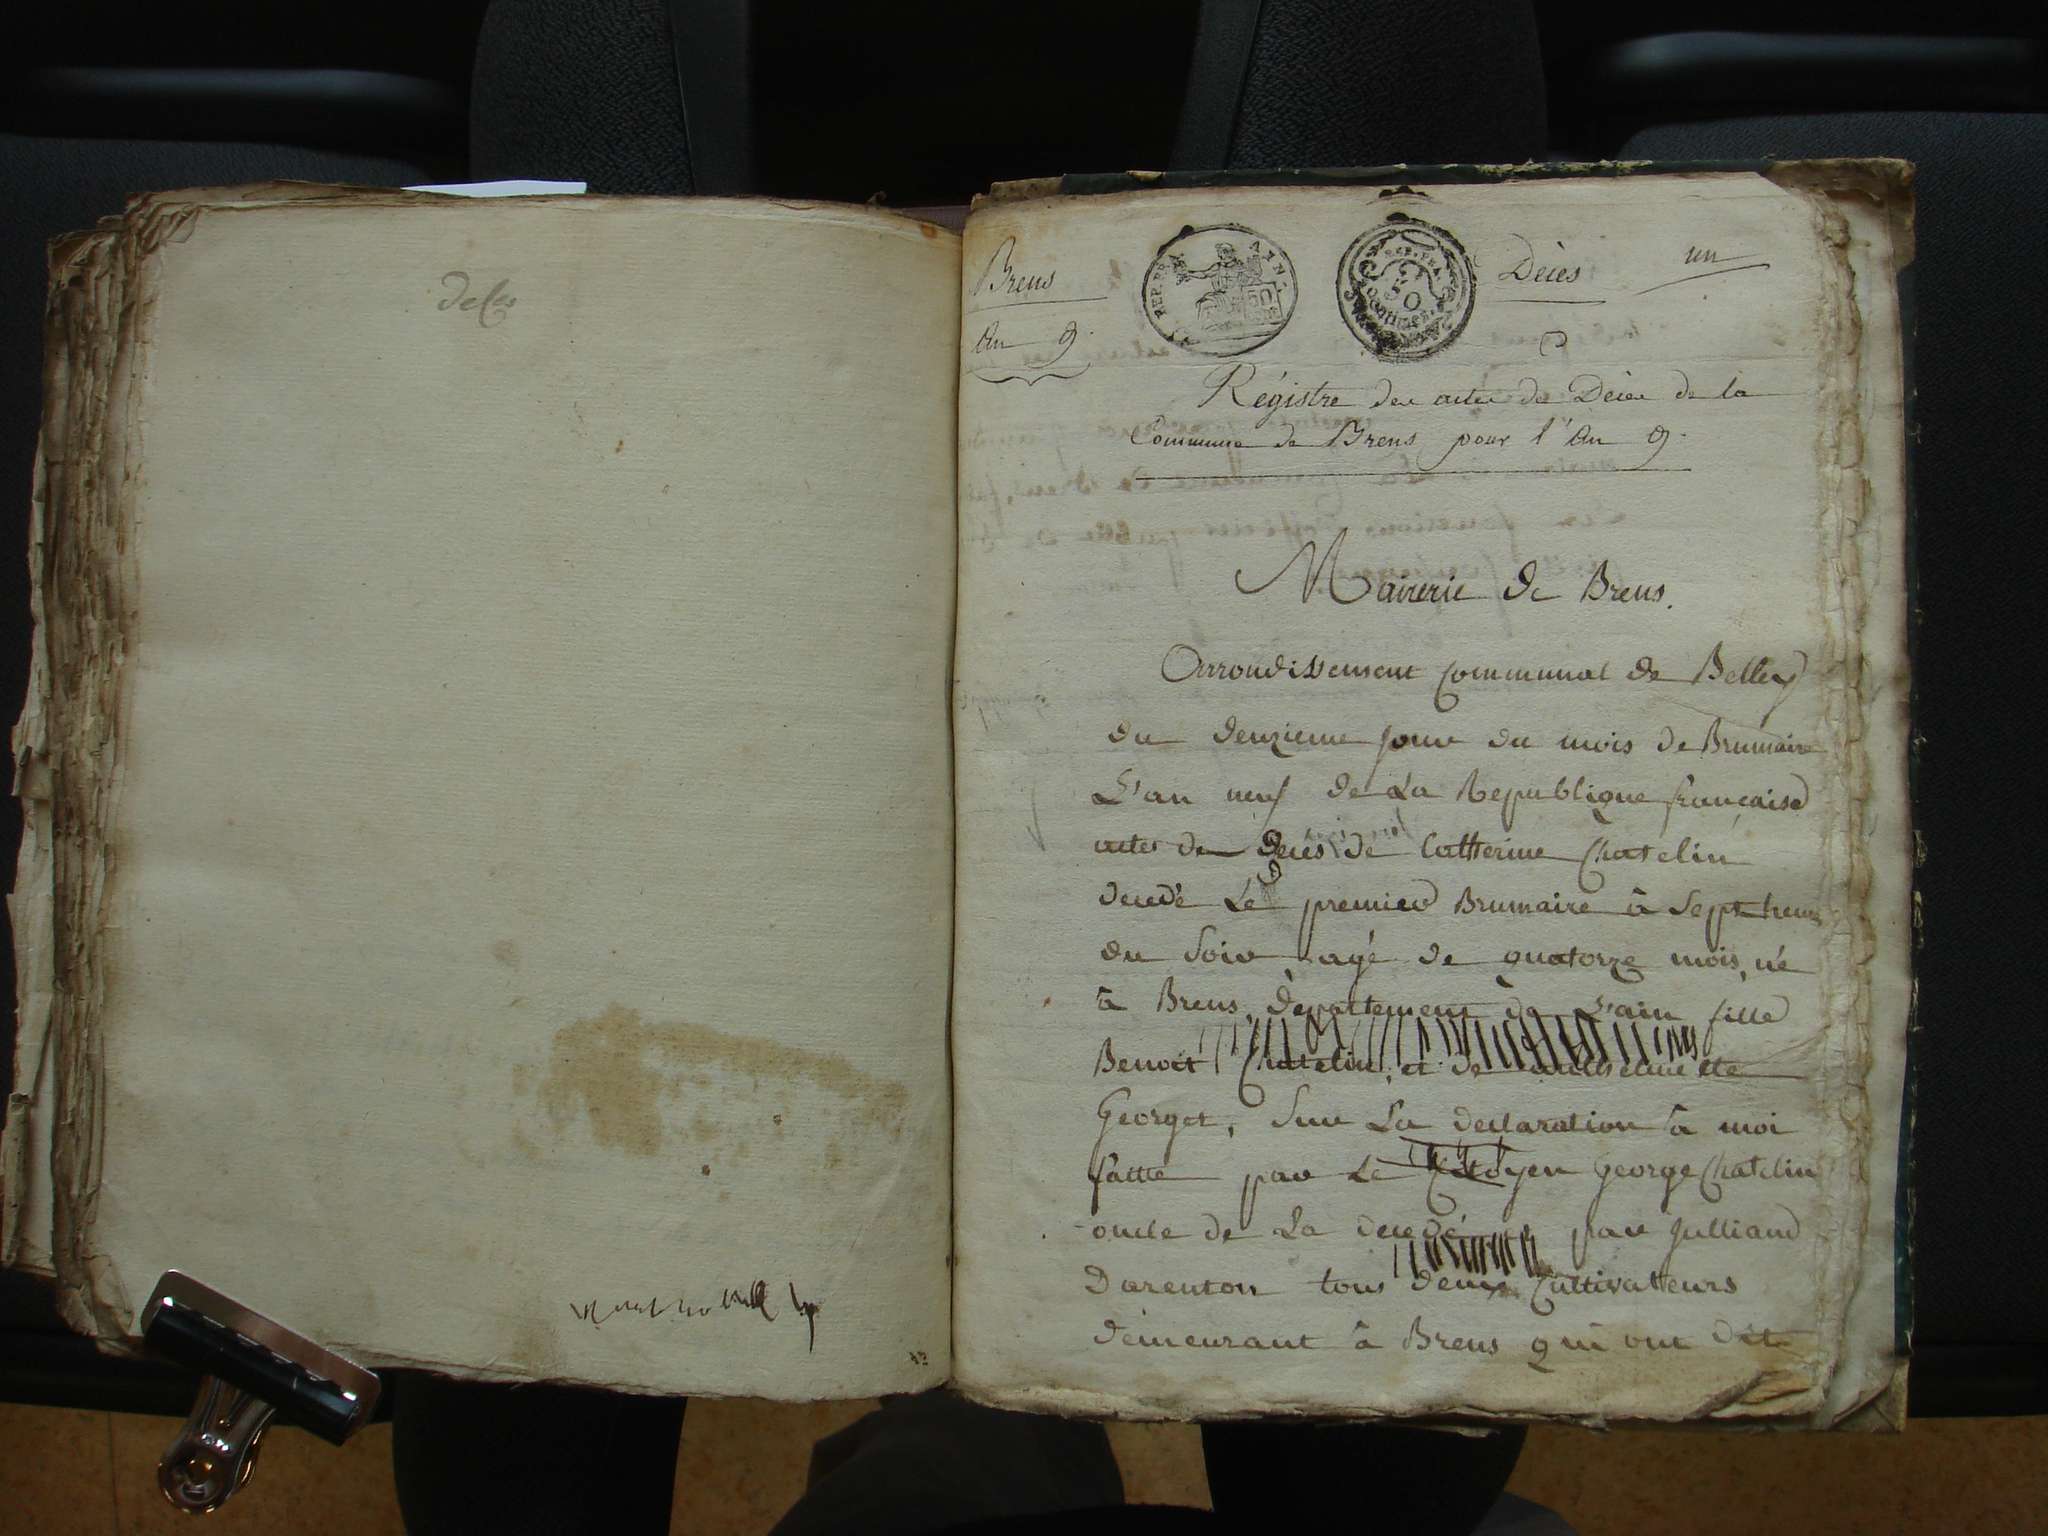 Brens
An 9.
REP. FRA
AYN
50
REP. FRA
50
Centimes
Décès
un
Régistre des actes de Décès de la
Commune de Brens pour l'An 9.
Mairerie de Brens.
Arrondissement Communal de Belley
du deuxieme jour du mois de Brumaire
L'an neuf de La Republique française
acte de decés de Catherine Chatelin
decedé Le premier Brumaire à Sept heures
du Soir agé de quatorze mois, né
à Brens, Departement de L'ain fille
Benoit Chatelin, et de
Georges, Sur La declaration à moi
faitte par Le Citoyen George Chatelin
oncle de La decedé par Julliand
Darenton tous deux Cultivatteurs
demeurant à Brens qui ont dit